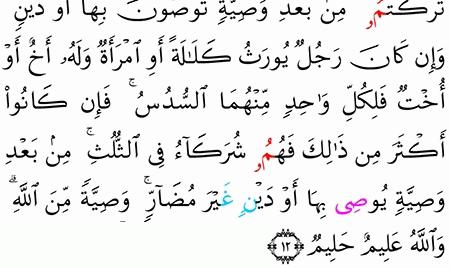 تَرَكْتُمُۥ مِّنۢ بَعْدِ وَصِيَّةٍ تُوصُونَ بِهَا أَوْ دَيْنٍ
وَإِن كَانَ رَجُلٌ يُورَثُ كَلَٰلَةً أَوِ ٱمْرَأَةٌ وَلَهُۥ أَخٌ أَوْ
أُخْتٌ فَلِكُلِّ وَٰحِدٍ مِّنْهُمَا ٱلسُّدُسُ ۚ فَإِن كَانُوٓا۟
أَكْثَرَ مِن ذَٰلِكَ فَهُمُۥ شُرَكَآءُ فِى ٱلثُّلُثِ ۚ مِنۢ بَعْدِ
وَصِيَّةٍ يُوصِى بِهَآ أَوْ دَيْنٍ غَيْرَ مُضَآرٍّ ۚ وَصِيَّةً مِّنَ ٱللَّهِ ۗ
وَٱللَّهُ عَلِيمٌ حَلِيمٌ ۝١٢